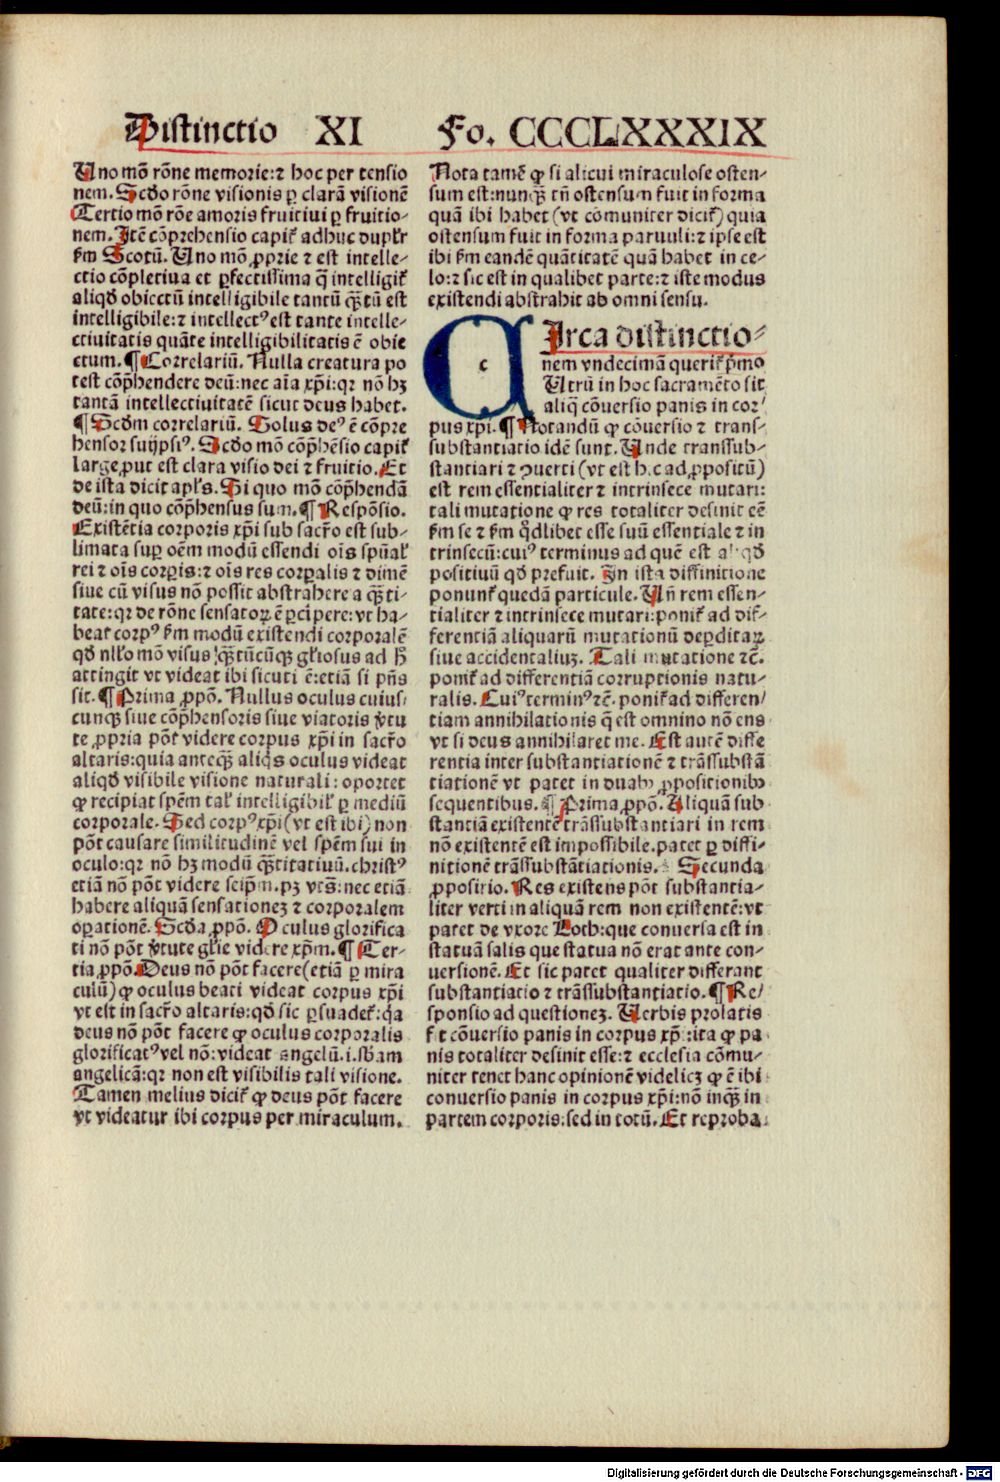 Distinctio XI Fo. CCCCLXXXIX
Uno mõ rõne memorie:⁊ hoc per tensio
nem. Scd̄o rõne visionis ꝑ clarã visionē
Tertio mõ rõe amoris fruitiui ꝑ fruitio-
nem. Itē cõprehensio capit̃ adhuc duplr̃
fm̃ Scotũ. Uno mõ ꝓprie ⁊ est intelle-
ctio cõpletiua et ꝑfectissima q̃ intelligit̃
aliqd̄ obiectũ intelligibile tantũ q̃ꝫtũ est
intelligibile:⁊ intellectꝰ est tante intelle-
ctiuitatis quãte intelligibilitatis ē obie
ctum. ¶ Correlariũ. Nulla creatura po
test cõp̃hendere deũ:nec aĩa xp̃i:qꝛ nõ hꝫ
tantã intellectiuitatē sicut deus habet.
¶ Scd̄m correlariũ. Solus deꝰ ē cõpre
hensor suijpsiꝰ. Scd̄o mõ cõp̃hẽsio capit̃
large,put est clara visio dei ⁊ fruitio. Et
de ista dicit apl̃s. Si quo mõ cõp̃hendã
deũ:in quo cõp̃hensus sum. ¶ Respõsio.
Existẽtia corporis xp̃i sub sacr̃o est sub-
limata suꝑ oẽm modũ essendi oĩs spũal̃
rei ⁊ oĩs corꝑis:⁊ oĩs res corꝑalis ⁊ dimẽ
siue cũ visus nõ possit abstrahere a q̃ꝫti-
tate:qꝛ de rõne sensatoꝝ ē ꝑcipere:vt ha-
beat corpꝰ fm̃ modũ existendi corporalē
qd̄ nll̃o mõ visus q̃ꝫtũcũqꝫ gl̃iosus ad h̃
attingit vt videat ibi sicuti ē:etiã si p̃ñs
sit. ¶ Prima ꝓpõ. Nullus oculus cuius-
cunqꝫ siue cõp̃hensoris siue viatoris ṽtu
te ꝓpria põt videre corpus xp̃i in sacr̃o
altaris:quia anteqꝫ̃ aliqs̃ oculus videat
aliqd̄ visibile visione naturali: oportet
ꝙ recipiat spẽm tal̃ intelligibil̃ ꝑ mediũ
corporale. Sed corpꝰ xp̃i (vt est ibi) non
põt causare similitudinē vel spẽm sui in
oculo:qꝛ nõ hꝫ modũ q̃ꝫtitatiuũ.christꝰ
etiã nõ põt videre seip̃m.pꝫ vtš:nec etiã
habere aliquã sensationeꝫ ⁊ corporalem
oꝑationē. Scd̄a ꝓpõ. Oculus glorifica
ti nõ põt ṽtute gl̃ie videre xp̃m. ¶ Ter-
tia ꝓpõ. Deus nõ põt facere(etiã ꝑ mira
culũ) ꝙ oculus beati videat corpus xp̃i
vt est in sacr̃o altaris:qd̄ sic ꝑsuadet̃:q̃a
deus nõ põt facere ꝙ oculus corporalis
glorificatꝰ vel nõ:videat angelũ.i.sb̃am
angelicã:qꝛ non est visibilis tali visione.
Tamen melius dicit̃ ꝙ deus põt facere
vt videatur ibi corpus per miraculum.
Nota tamẽ ꝙ si alicui miraculose osten-
sum est:nunqꝫ̃ tñ ostensum fuit in forma
quã ibi habet (vt cõmuniter dicit̃) quia
ostensum fuit in forma paruuli:⁊ ipse est
ibi fm̃ eandē quãtitatē quã habet in ce-
lo:⁊ sic est in qualibet parte:⁊ iste modus
existendi abstrahit ab omni sensu.
c
Irca distinctio-
nem vndecimã querit̃ p̃mo
Utrũ in hoc sacramẽto sit
aliq̃ cõuersio panis in cor-
pus xp̃i. ¶ Notandũ ꝙ cõuersio ⁊ trans-
substantiatio idē sunt. Unde transsub-
stantiari ⁊ ꝯuerti (vt est h.c ad ꝓpositũ)
est rem essentialiter ⁊ intrinsece mutari:
tali mutatione ꝙ res totaliter desinit eē
fm̃ se ⁊ fm̃ qd̃libet esse suũ essentiale ⁊ in
trinsecũ:cuiꝰ terminus ad quē est aliqd̄
positiuũ qd̄ prefuit. In ista diffinitione
ponunt̃ quedã particule. Uñ rem essen-
tialiter ⁊ intrinsece mutari:ponit̃ ad dif-
ferentiã aliquarũ mutationũ deꝑditaꝝ
siue accidentaliuꝫ. Tali mutatione ⁊c̃.
ponit̃ ad differentiã corruptionis natu-
ralis. Cuiꝰ terminꝰ ⁊c̃. ponit̃ ad differen-
tiam annihilationis q̃ est omnino nõ ens
vt si deus annihilaret me. Est autẽ diffe
rentia inter substantiationē ⁊ trãssubstã
tiationē vt patet in duabꝰ ꝓpositionibꝰ
sequentibus. ¶ Prima ꝓpõ. Aliquã sub
stantiã existentē trãssubstantiari in rem
nõ existentē est impossibile.patet ꝑ diffi-
nitionē trãssubstãtiationis. Secunda
ꝓpositio. Res existens põt substantia-
liter verti in aliquã rem non existentē:vt
patet de vxore Loth:que conuersa est in
statuã salis que statua nõ erat ante con-
uersionē. Et sic patet qualiter differant
substantiatio ⁊ trãssubstantiatio. ¶ Re-
sponsio ad questioneꝫ. Uerbis prolatis
fit cõuersio panis in corpus xp̃i:ita ꝙ pa
nis totaliter desinit esse:⁊ ecclesia cõmu-
niter tenet hanc opinionē videlicꝫ ꝙ ē ibi
conuersio panis in corpus xp̃i:nõ inqꝫ̃ in
partem corporis:sed in totũ. Et reproba
Digitalisierung gefördert durch die Deutsche Forschungsgemeinschaft - DFG